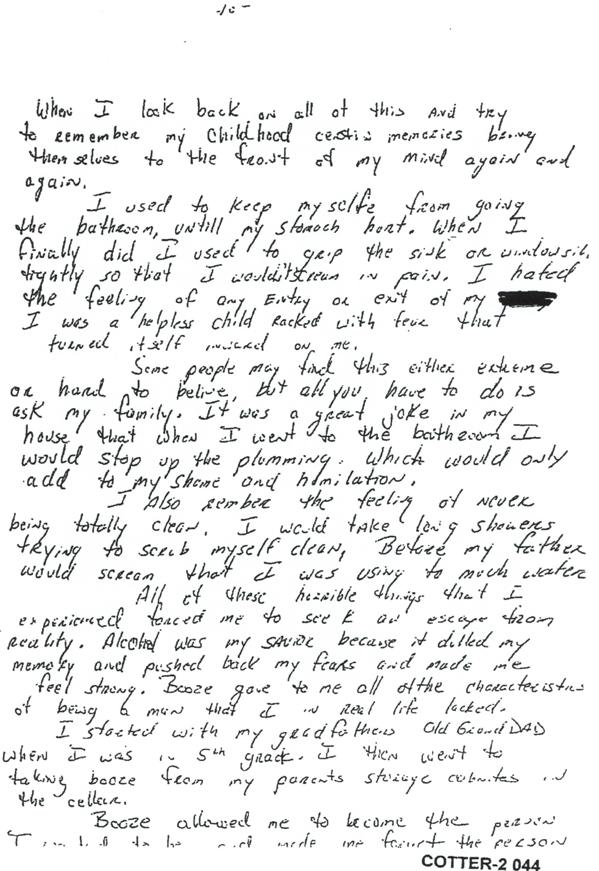 -10-
When I look back on all of this and try
to remember my Childhood certin memories bring
themselves to the front of my mind again and
again.
I used to keep my selfe from going
the bathroom, untill my stomach hurt. When I
finally did I used to grip the sink or windowsil
tightly so that I wouldn't scream in pain. I hated
the feeling of any Entry or exit of my
I was a helpless child racked with fear that
turned itself inward on me.
Some people may find this either extreme
or hard to belive, but all you have to do is
ask my family. It was a great joke in my
house that when I went to the bathroom I
would stop up the plumming. Which would only
add to my shame and humilation.
I Also rember the feeling of never
being totally clean. I would take long showers
trying to scrub myself clean, Before my father
would scream that I was using to much water
All of these horrible things that I
experienced forced me to seek an escape from
reality. Alcohol was my savior because it dulled my
memory and pushed back my fears and made me
feel strong. Booze gave to me all of the characteristics
of being a man that I in real life lacked.
I started with my gradfathers Old Grand DAD
when I was in 5th grade. I then went to
taking booze from my parents storage cabnites in
the celler.
Booze allowed me to become the person
I to be and made me forget the person
COTTER-2 044